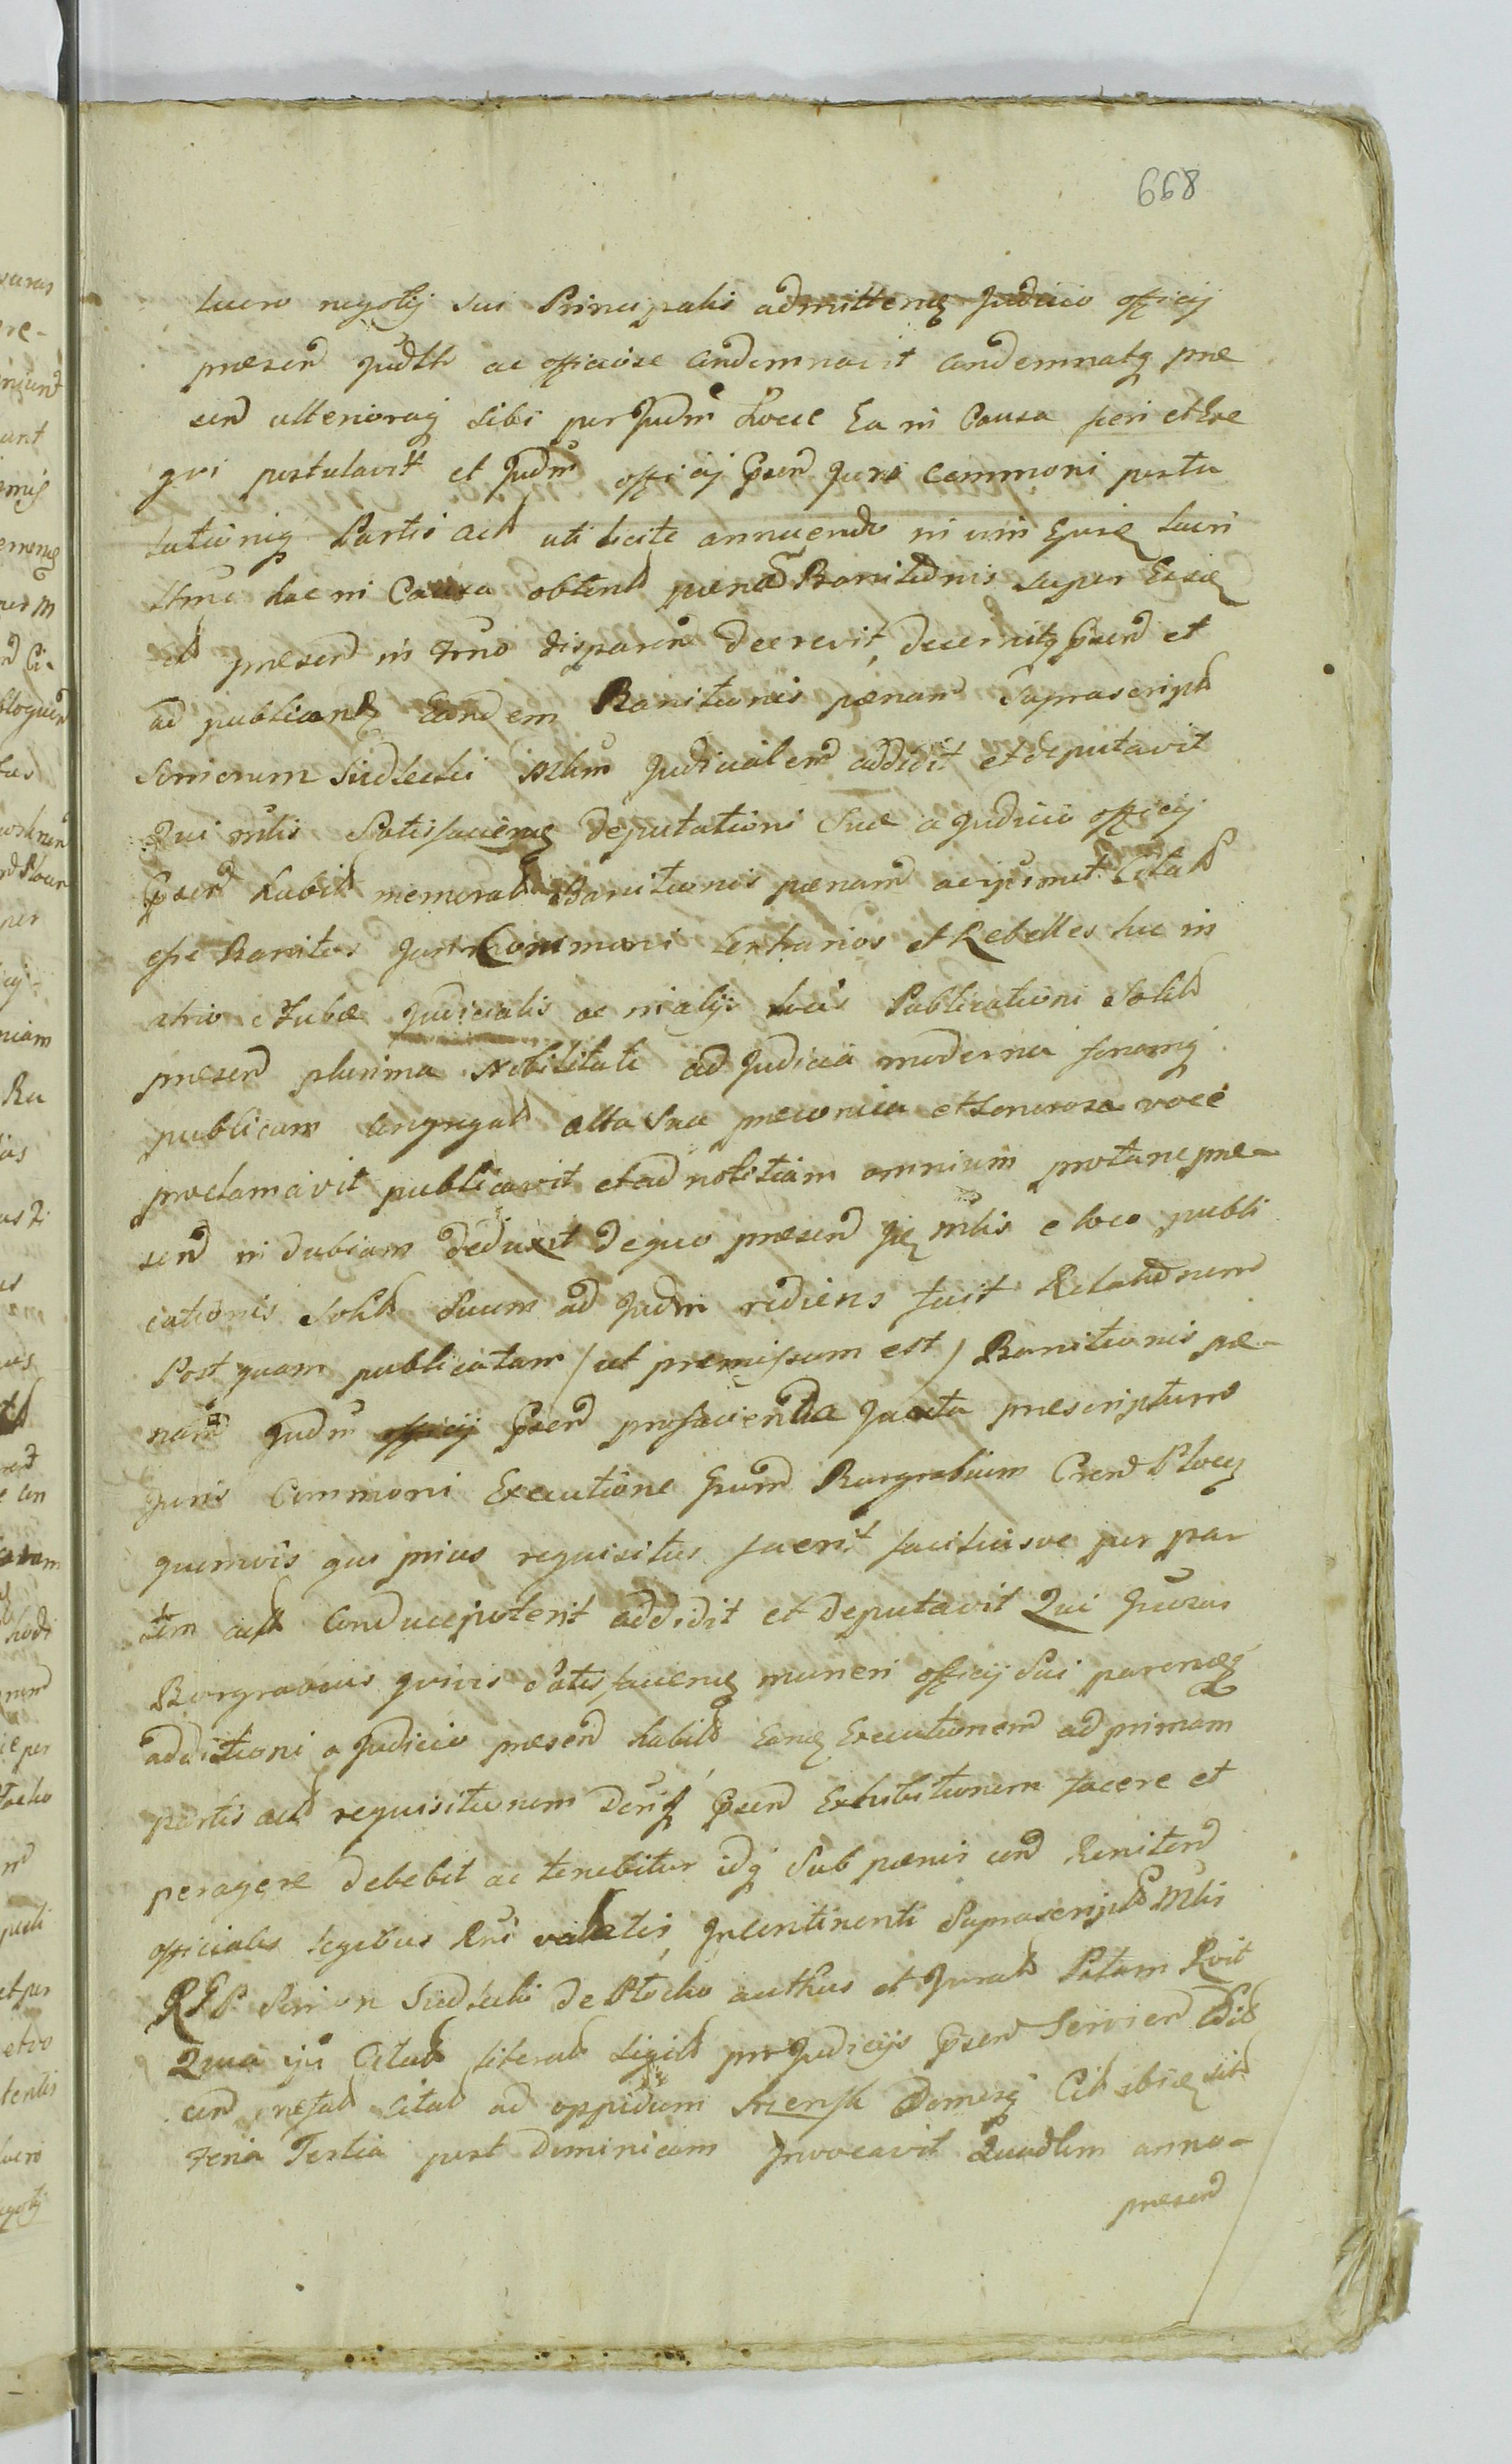 668
lucro negotij sui Principalis admittens Judicio officij
præsen Judtt ac officiose condemnavit condemnatq præ
sen ulterioraq sibi per Judm Lucre Ea in Causa fieri et Exe
qui postulavitt et Judm officij Pœn Juri Communi postu
lationiq Partis act uti licite annuendo in vim
hac in Causa obtent pœnã Banitõnis super
præsen in Trno disparen decrevit, decernitq Psen et
ad publicand Eandem Banitionis pænam Suprascript
Simonem Siedlecki Mlum Judicialem addidit et deputavit
Qui mlis Satisfaciens deputationi Suæ a Judicio officij
Psen habit memorat Banitionis pænam Citat
esse Banitos Juri Communi Contrarios et Rebelles hic in
atrio Stubæ Judicialis ac in alijs locis Publicationi Solit
præsen plurima Nobilitate ad Judicia moderna forumq
publicum Congregat alta Sua præconica et Sonorosa voce
proclamavit publicavit et ad notitiam omnium protunc præ-
sen in dubiam deduxit de quo præsen Jq mlis e loco publi
cationis Solit Suum ad Judm rediens fecit Relatõnem
Post quam publicatam / ut premissum est / Banitionis pæ-
nam Judm officij Psen pro facienda Juxta præscriptum
Juris Communi Executione Grum Burgrabium Cren Plocen
quemvis qui prius requisitus fuerit faciliusve per par
tem act Conduci poterit addidit et deputavit Qui Grosus
Burgrabius quivis Satisfaciens muneri officij Sui
additioni a Judicio præsen habit Executionem ad primam
partis act requisitionem Psen Exhibitionem facere et
peragere debebit ac tenebitur idq Sub pænis con Reniten
officiales legibus Rni vallatis, Incontinenti Suprascript Mlis
RGP Simon Siedlecki de Plocko authus et Jurat Palam Rvit
Quia ijs Citat literat Sigill pro Judicijs Psen Servien
con Citat ad oppidum
Feria Tertia post Dominicam Invocavit Quadlem anno-
præsen